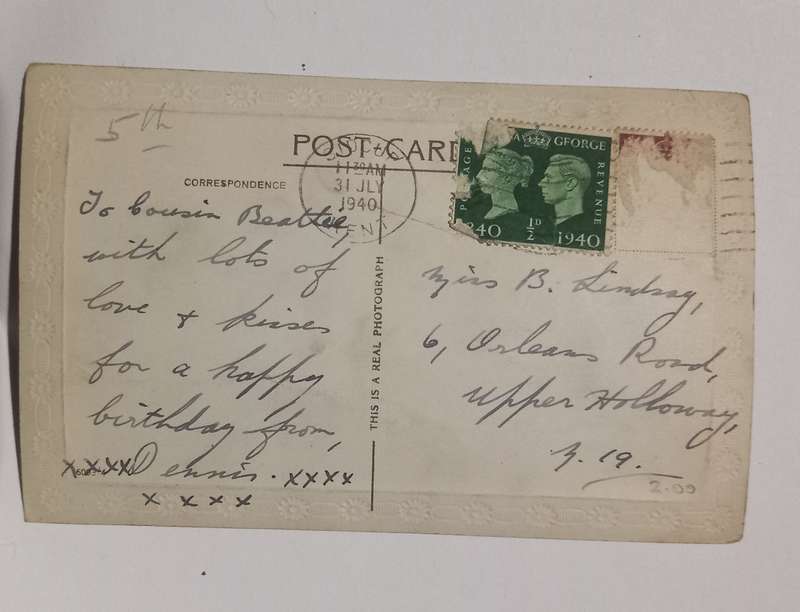 5th
POST CARD
CORRESPONDENCE
11 30 AM
31 JLY
1940
KENT
POSTAGE
GEORGE
REVENUE
1/2 D
1940
To Cousin Beattie,
with lots of
love & kisses
for a happy
birthday from,
xxxx Dennis. xxxx
x x x x
THIS IS A REAL PHOTOGRAPH
Miss B. Lindsay,
6, Orleans Road,
Upper Holloway,
N. 19.
2.00